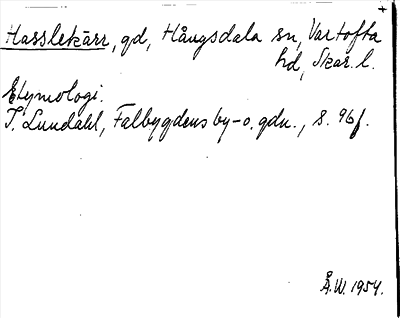 Hasslekärr, gd, Hångsdala sn, Vartofta
hd, Skar. l.
Etymologi.
I. Lundahl, Falbygdens by- o. gdn., s. 96 f.
Å.W. 1954.